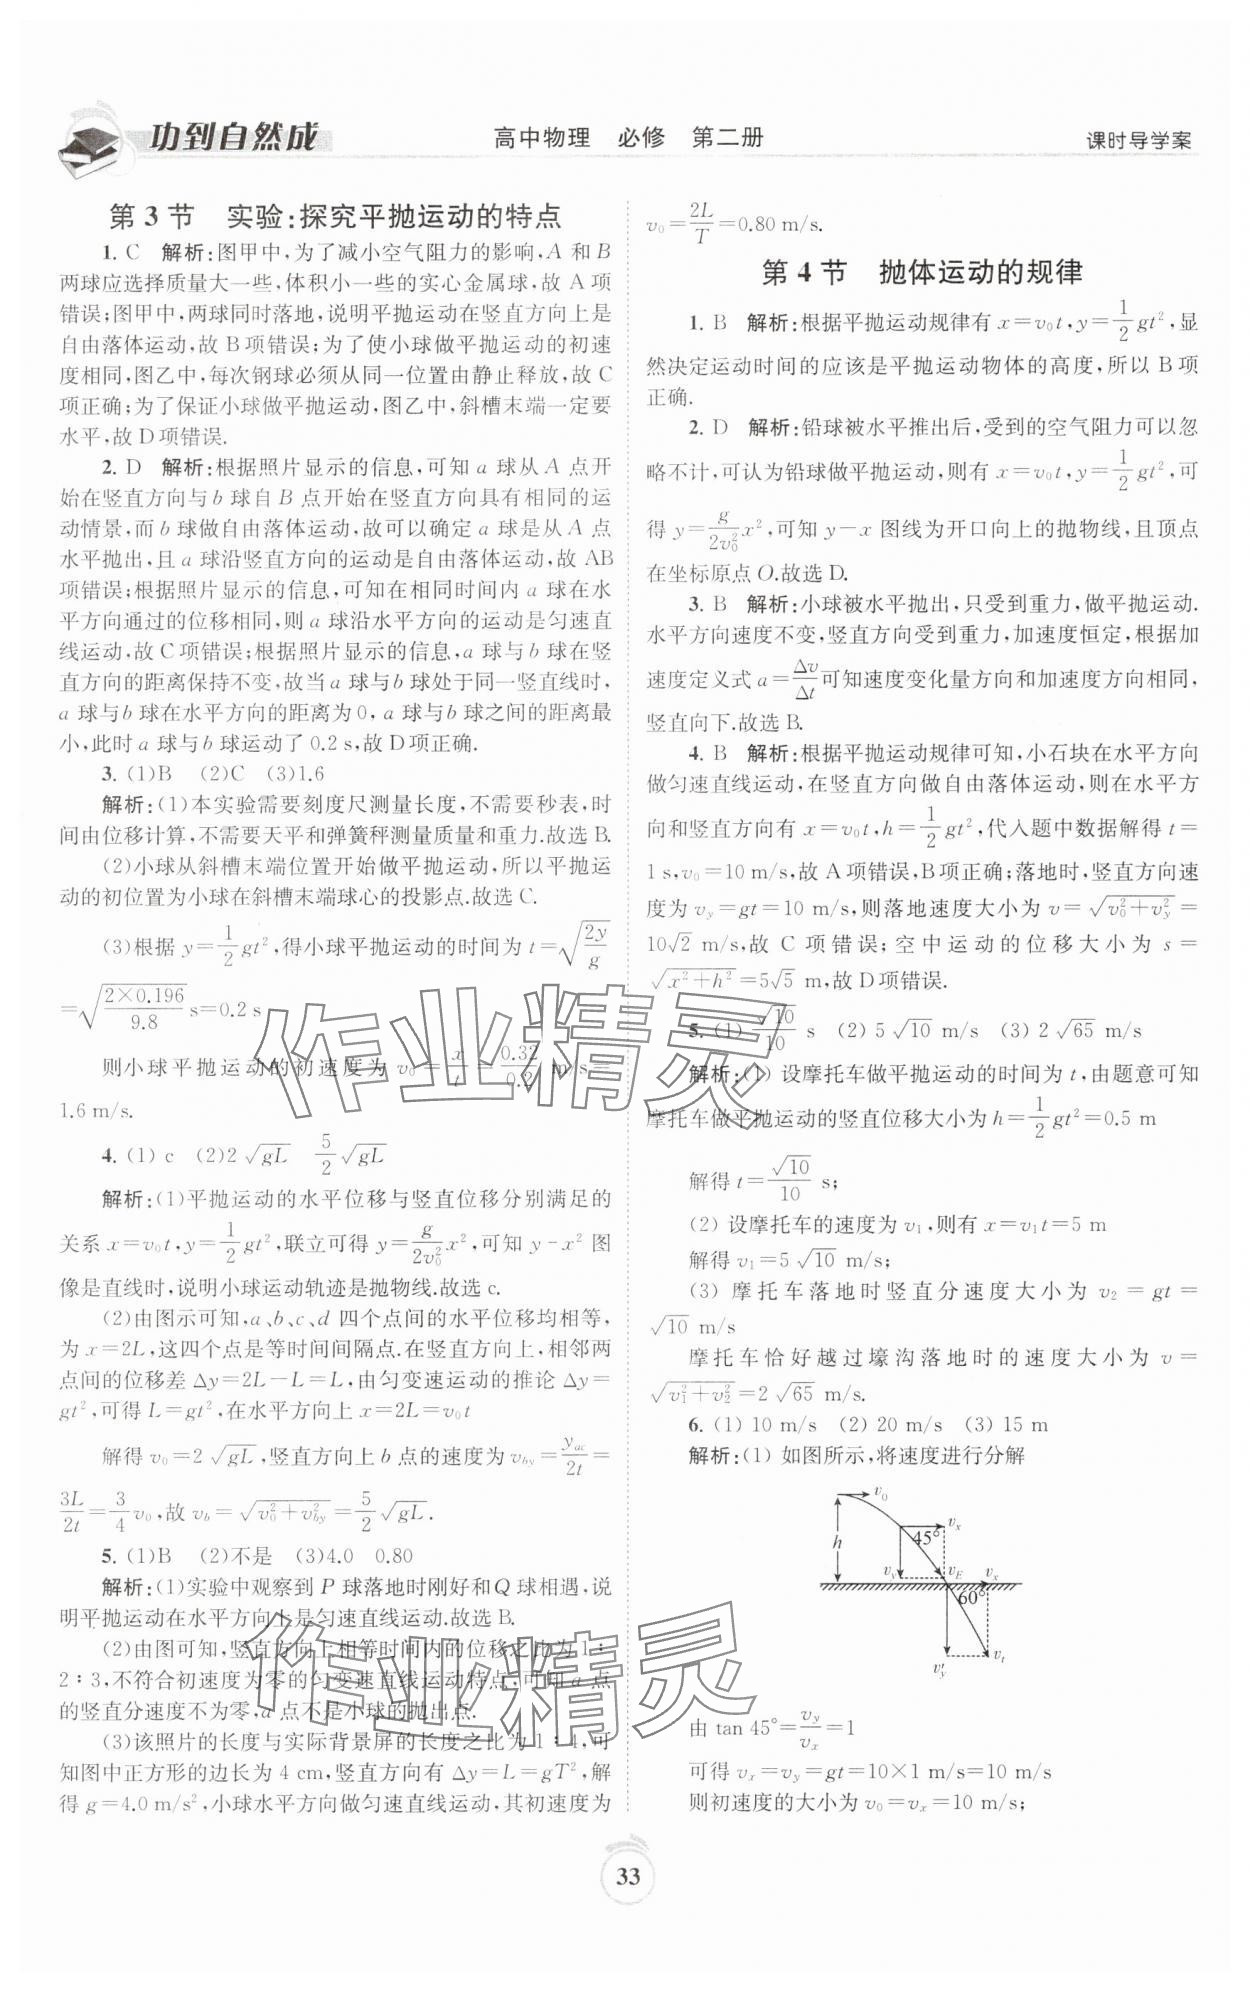 功到自然成
高中物理　必修　第二册
课时导学案
第 3 节　实验:探究平抛运动的特点
1. C　解析:图甲中,为了减小空气阻力的影响,A 和 B
两球应选择质量大一些,体积小一些的实心金属球,故 A 项
错误;图甲中,两球同时落地,说明平抛运动在竖直方向上是
自由落体运动,故 B 项错误;为了使小球做平抛运动的初速
度相同,图乙中,每次钢球必须从同一位置由静止释放,故 C
项正确;为了保证小球做平抛运动,图乙中,斜槽末端一定要
水平,故 D 项错误.
2. D　解析:根据照片显示的信息,可知 a 球从 A 点开
始在竖直方向与 b 球自 B 点开始在竖直方向具有相同的运
动情景,而 b 球做自由落体运动,故可以确定 a 球是从 A 点
水平抛出,且 a 球沿竖直方向的运动是自由落体运动,故 AB
项错误;根据照片显示的信息,可知在相同时间内 a 球在水
平方向通过的位移相同,则 a 球沿水平方向的运动是匀速直
线运动,故 C 项错误;根据照片显示的信息,a 球与 b 球在竖
直方向的距离保持不变,故当 a 球与 b 球处于同一竖直线时,
a 球与 b 球在水平方向的距离为 0,a 球与 b 球之间的距离最
小,此时 a 球与 b 球运动了 0.2 s,故 D 项正确.
3. (1)B　(2)C　(3)1.6
解析:(1)本实验需要刻度尺测量长度,不需要秒表,时
间由位移计算,不需要天平和弹簧秤测量质量和重力.故选 B.
(2)小球从斜槽末端位置开始做平抛运动,所以平抛运
动的初位置为小球在斜槽末端球心的投影点.故选 C.
(3)根据 y=1/2 gt²,得小球平抛运动的时间为 t=√(2y/g)
=√(2×0.196/9.8) s=0.2 s
则小球平抛运动的初速度为 v₀=x/t=0.32/0.2 m/s=
1.6 m/s.
4. (1) c　(2)2√(gL)　5/2 √(gL)
解析:(1)平抛运动的水平位移与竖直位移分别满足的
关系 x=v₀t,y=1/2 gt²,联立可得 y=g/(2v₀²) x²,可知 y-x² 图
像是直线时,说明小球运动轨迹是抛物线.故选 c.
(2)由图示可知,a、b、c、d 四个点间的水平位移均相等,
为 x=2L,这四个点是等时间间隔点.在竖直方向上,相邻两
点间的位移差 Δy=2L-L=L,由匀变速运动的推论 Δy=
gt²,可得 L=gt²,在水平方向上 x=2L=v₀t
解得 v₀=2√(gL),竖直方向上 b 点的速度为 v_by=y_ac/2t=
3L/2t=3/4 v₀,故 v_b=√(v₀²+v_by²)=5/2 √(gL).
5. (1)B　(2)不是　(3)4.0　0.80
解析:(1)实验中观察到 P 球落地时刚好和 Q 球相遇,说
明平抛运动在水平方向上是匀速直线运动.故选 B.
(2)由图可知,竖直方向上相等时间内的位移之比为 1∶
2∶3,不符合初速度为零的匀变速直线运动特点,可知 a 点
的竖直分速度不为零,a 点不是小球的抛出点.
(3)该照片的长度与实际背景屏的长度之比为 1∶4,可
知图中正方形的边长为 4 cm,竖直方向有 Δy=L=gT²,解
得 g=4.0 m/s²,小球水平方向做匀速直线运动,其初速度为
v₀=2L/T=0.80 m/s.
第 4 节　抛体运动的规律
1. B　解析:根据平抛运动规律有 x=v₀t,y=1/2 gt²,显
然决定运动时间的应该是平抛运动物体的高度,所以 B 项
正确.
2. D　解析:铅球被水平推出后,受到的空气阻力可以忽
略不计,可认为铅球做平抛运动,则有 x=v₀t,y=1/2 gt²,可
得 y=g/(2v₀²) x²,可知 y-x 图线为开口向上的抛物线,且顶点
在坐标原点 O.故选 D.
3. B　解析:小球被水平抛出,只受到重力,做平抛运动.
水平方向速度不变,竖直方向受到重力,加速度恒定,根据加
速度定义式 a=Δv/Δt 可知速度变化量方向和加速度方向相同,
竖直向下.故选 B.
4. B　解析:根据平抛运动规律可知,小石块在水平方向
做匀速直线运动,在竖直方向做自由落体运动,则在水平方
向和竖直方向有 x=v₀t,h=1/2 gt²,代入题中数据解得 t=
1 s,v₀=10 m/s,故 A 项错误,B 项正确;落地时,竖直方向速
度为 v_y=gt=10 m/s,则落地速度大小为 v=√(v₀²+v_y²)=
10√2 m/s,故 C 项错误;空中运动的位移大小为 s=
√(x²+h²)=5√5 m,故 D 项错误.
5. (1) √10/10 s　(2) 5√10 m/s　(3) 2√65 m/s
解析:(1) 设摩托车做平抛运动的时间为 t,由题意可知
摩托车做平抛运动的竖直位移大小为 h=1/2 gt²=0.5 m
解得 t=√10/10 s;
(2) 设摩托车的速度为 v₁,则有 x=v₁t=5 m
解得 v₁=5√10 m/s;
(3) 摩托车落地时竖直分速度大小为 v₂=gt=
√10 m/s
摩托车恰好越过壕沟落地时的速度大小为 v=
√(v₁²+v₂²)=2√65 m/s.
6. (1) 10 m/s　(2) 20 m/s　(3) 15 m
解析:(1) 如图所示,将速度进行分解
v₀
h
45°
v_x
v_y
v_E
v_x
60°
v′_y
v_t
由 tan 45°=v_y/v_x=1
可得 v_x=v_y=gt=10×1 m/s=10 m/s
则初速度的大小为 v₀=v_x=10 m/s;
33
作业精灵
作业精灵